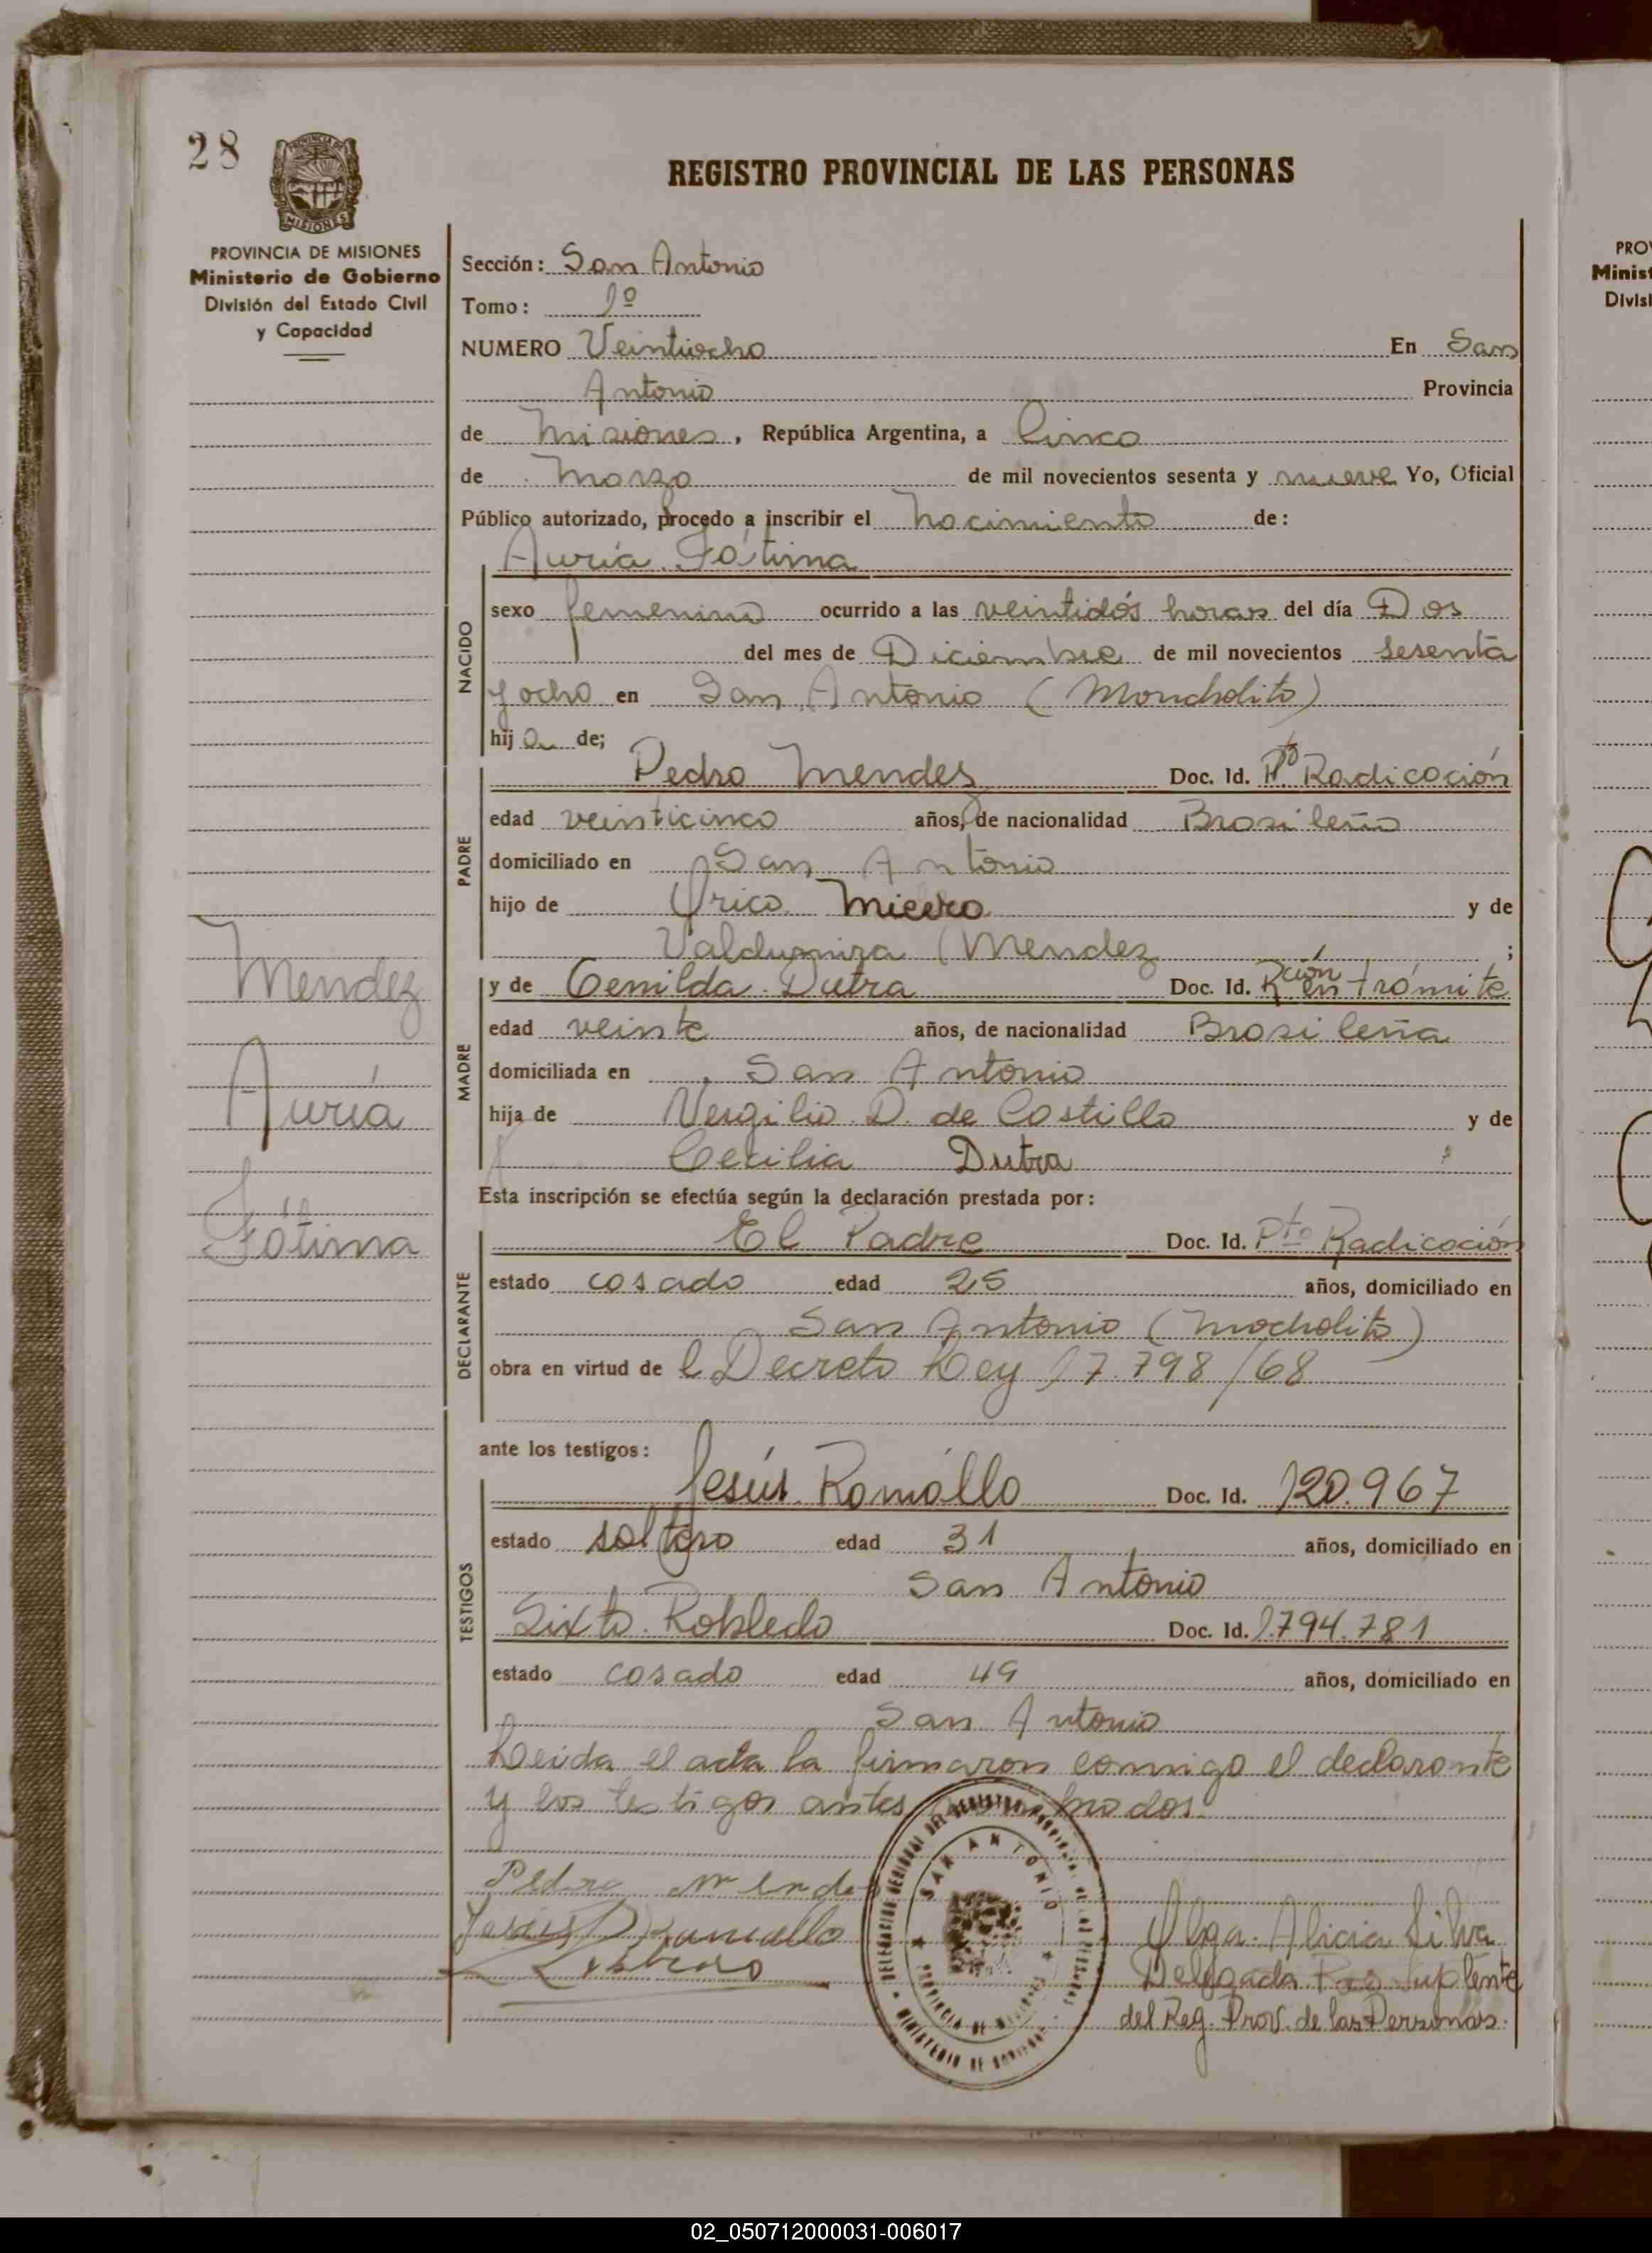 28
MISIONES
REGISTRO PROVINCIAL DE LAS PERSONAS
PROVINCIA DE MISIONES
Ministerio de Gobierno
División del Estado Civil
y Capacidad
Sección: San Antonio
Tomo: 1º
NUMERO Veintiocho En San
Antonio Provincia
de Misiones, República Argentina, a Cinco
de Marzo de mil novecientos sesenta y nueve Yo, Oficial
Público autorizado, procedo a inscribir el Nacimiento de:
Auria Fátima
NACIDO
sexo femenino ocurrido a las veintidós horas del día Dos
del mes de Diciembre de mil novecientos sesenta
y ocho en San Antonio (Moncholito)
hij a de;
PADRE
Pedro Mendes Doc. Id. Pto Radicación
edad veinticinco años, de nacionalidad Brasileño
domiciliado en San Antonio
hijo de Orico y de
Mendez ;
MADRE
y de Cemilda Dutra Doc. Id. Rción en Trámite
edad veinte años, de nacionalidad Brasileña
domiciliada en San Antonio
hija de Vergilio D. de Costillo y de
Cecilia Dutra
Mendez
Auria
Fátima
Esta inscripción se efectúa según la declaración prestada por:
DECLARANTE
El Padre Doc. Id. Pto Radicación
estado casado edad 25 años, domiciliado en
San Antonio (Mocholito)
obra en virtud de l Decreto Ley 17.798/68
ante los testigos:
TESTIGOS
Jesús Ramállo Doc. Id. 120.967
estado soltero edad 31 años, domiciliado en
San Antonio
Sixto Robledo Doc. Id. 1.794.781
estado casado edad 49 años, domiciliado en
San Antonio
Leida el acta la firmaron conmigo el declarante
y los testigos antes
Pedro Mendes
Jesús D Ramallo
SAN ANTONIO
PROVINCIA DE MISIONES
MINISTERIO DE GOBIERNO
Olga Alicia Silva
Delegada Suplente
del Reg. Prov. de las Personas.
PROV
Minist
Divisi
02_050712000031-006017